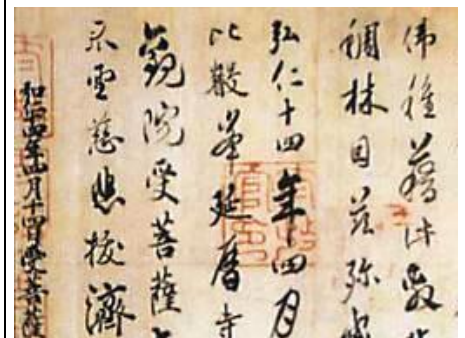 佛種藉此敷
稠林因茲弥
弘仁十四年四月
比叡峯延暦寺
觀院受菩薩
霊慈悲拔濟
仁十四年四月十四日受菩薩